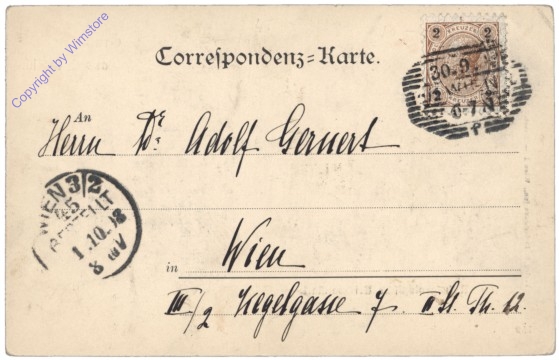 Copyright by Wimstore
2 KREUZER 2
Correspondenz=Karte.
30.9
WIEN
2
An
Herrn Dr. Adolf Gernert
WIEN 3/2
BESTELLT
1.10.98
8 V
Wien
in
III/2 Kegelgasse 7 II St. Th. 12.